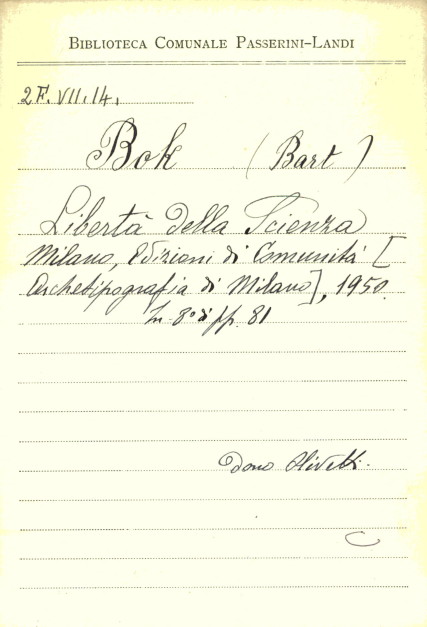 BIBLIOTECA COMUNALE PASSERINI-LANDI
2F. VII. 14.
Bok (Bart)
Libertà della Scienza
Milano, Edizioni di Comunità [
Archetipografia di Milano], 1950.
In-8° di pp. 81
Dono Olivetti.